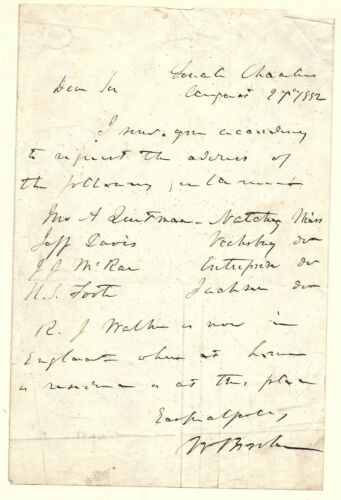 Senate Chamber
Dear Sir August 27th 1852
I send you according
to request the address of
the following gentlemen
Jno A Quitman - Natchez Miss
Jeff Davis Vicksburg do
J J McRae Enterprise do
H. S. Foote Jackson do
R. J Walker is now in
England when at home
a residence is at this place
Respectfully
W Brooke